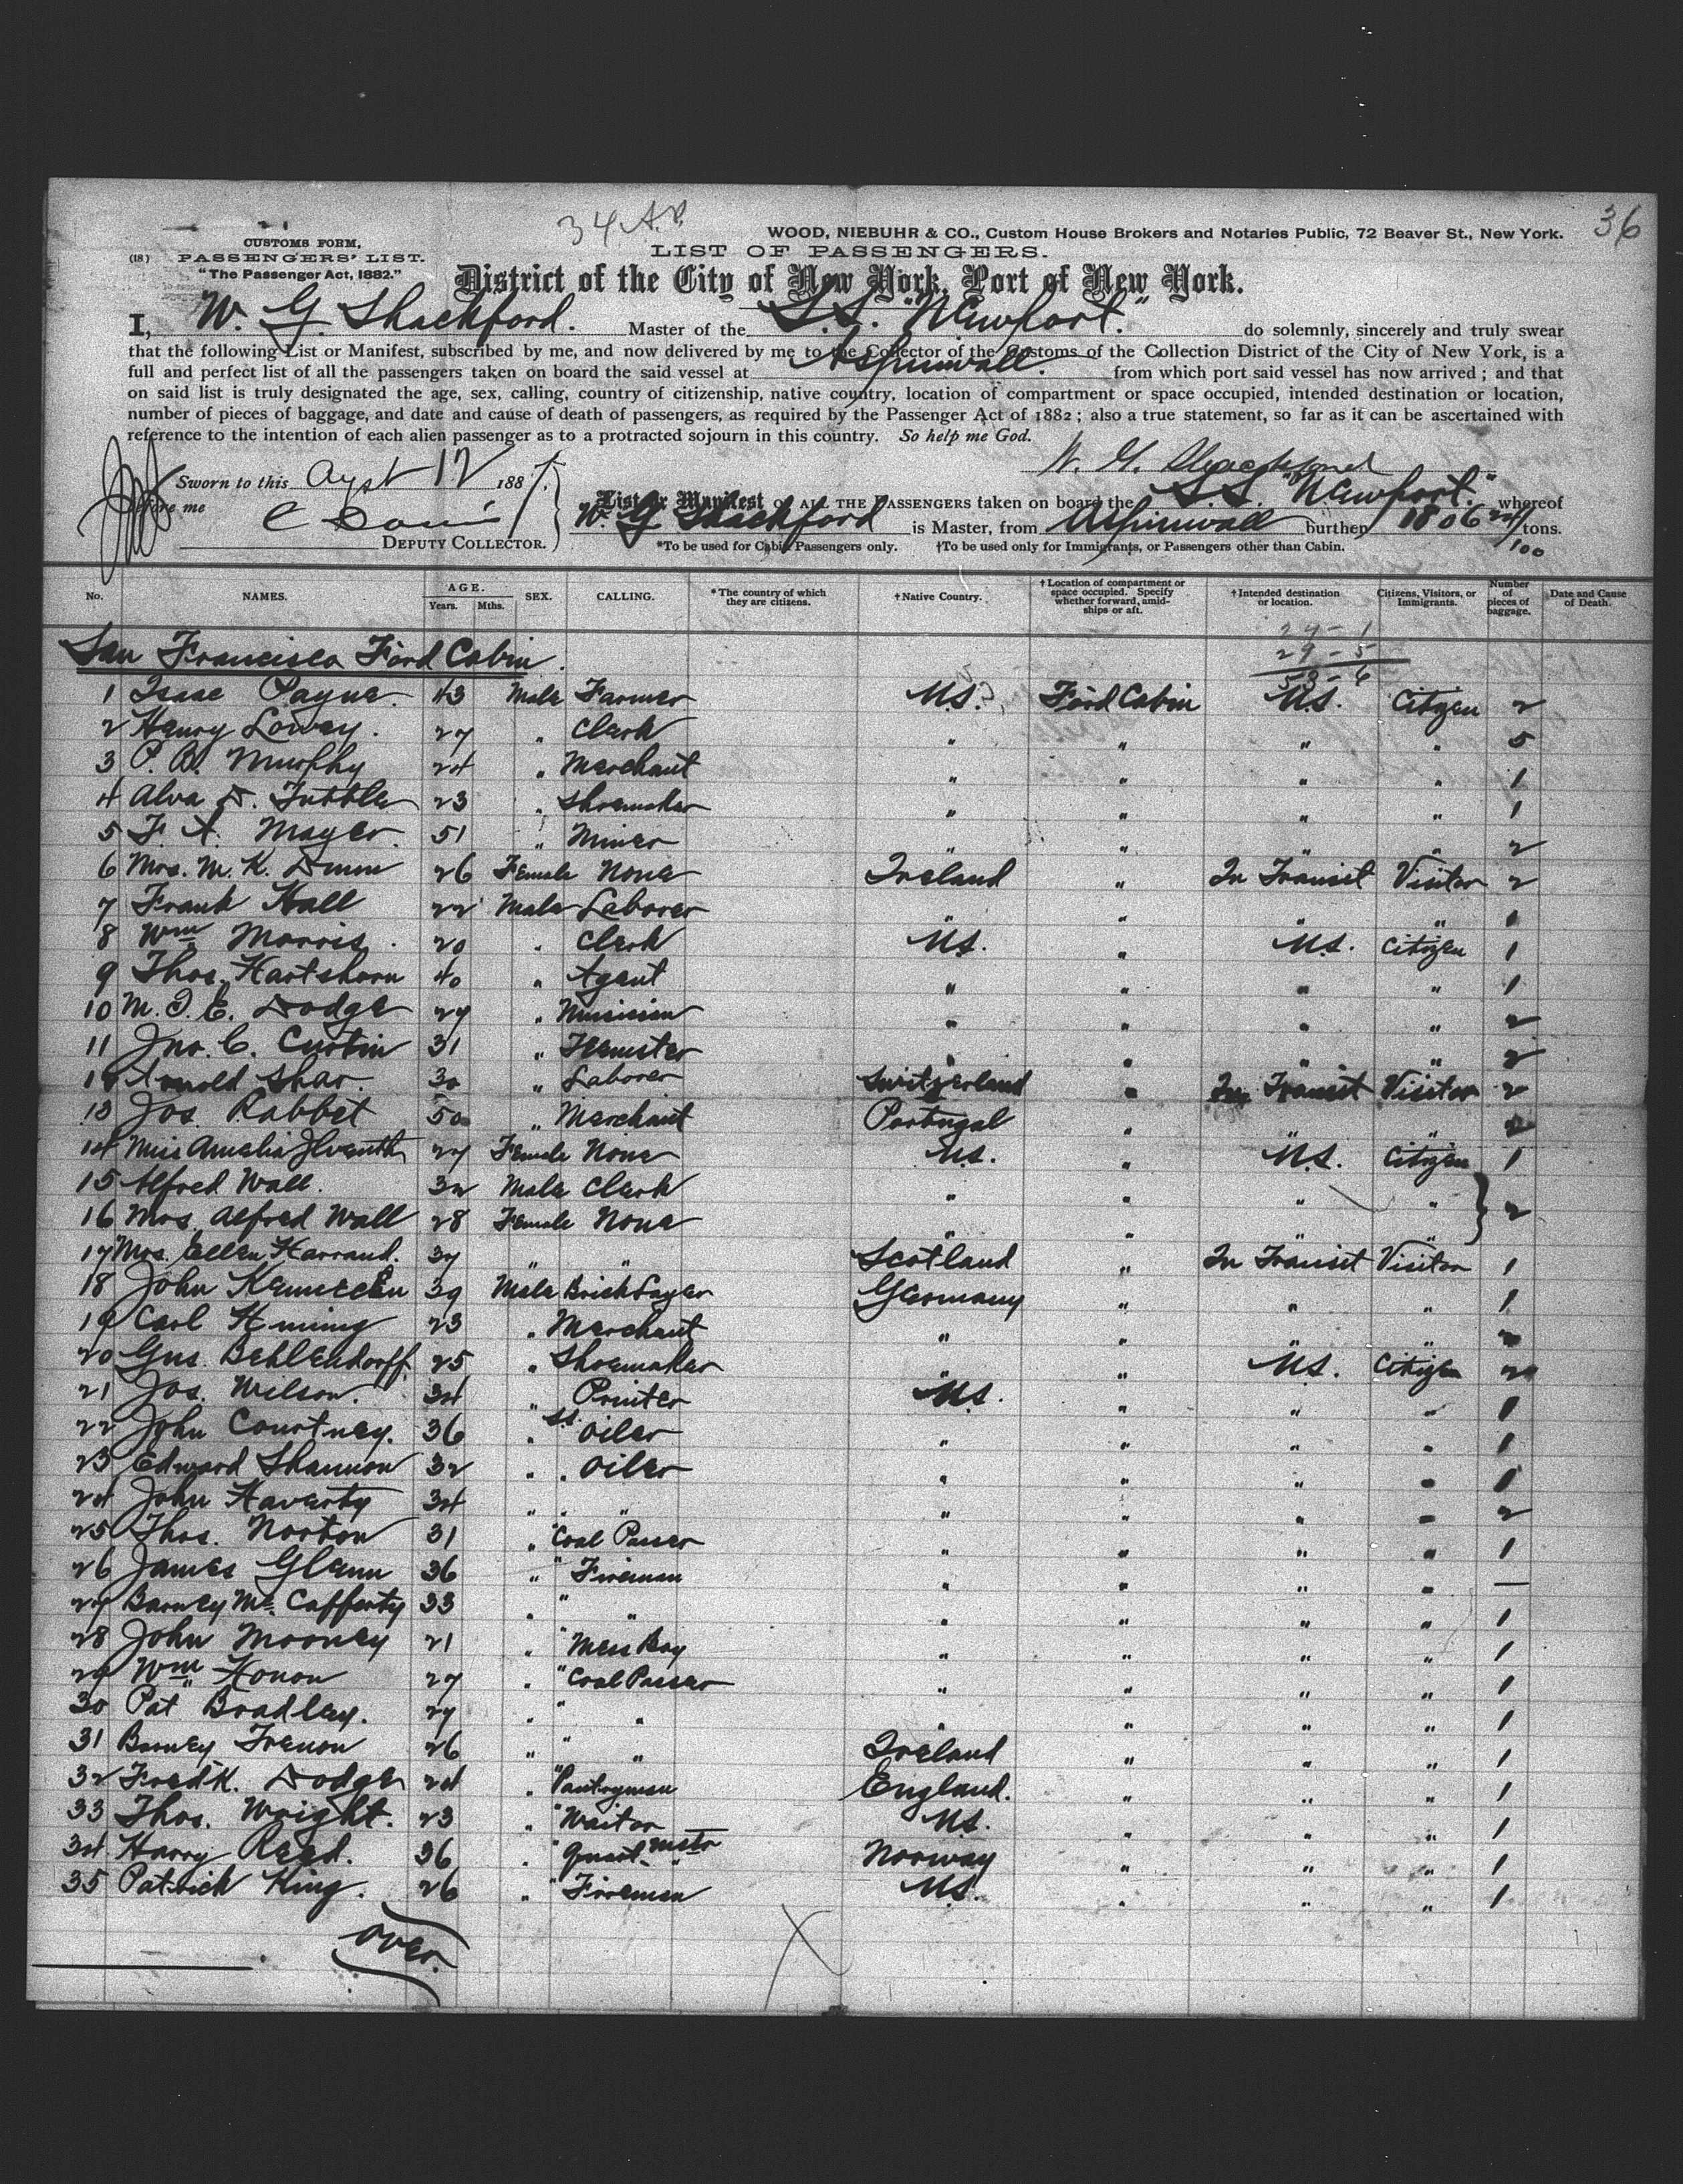 34 A.P.
36
WOOD, NIEBUHR & CO., Custom House Brokers and Notaries Public, 72 Beaver St., New York.
CUSTOMS FORM,
(18) PASSENGERS' LIST.
"The Passenger Act, 1882."
LIST OF PASSENGERS.
District of the City of New York, Port of New York.
I, W. G. Shackford. Master of the S.S. "Newport." do solemnly, sincerely and truly swear
that the following List or Manifest, subscribed by me, and now delivered by me to the Collector of the Customs of the Collection District of the City of New York, is a
full and perfect list of all the passengers taken on board the said vessel at Aspinwall. from which port said vessel has now arrived ; and that
on said list is truly designated the age, sex, calling, country of citizenship, native country, location of compartment or space occupied, intended destination or location,
number of pieces of baggage, and date and cause of death of passengers, as required by the Passenger Act of 1882 ; also a true statement, so far as it can be ascertained with
reference to the intention of each alien passenger as to a protracted sojourn in this country. So help me God.
W. G. Shackford
Sworn to this Augst 12 1887.
before me
C Davis
DEPUTY COLLECTOR.
List or Manifest OF ALL THE PASSENGERS taken on board the S.S. "Newport." whereof
W. G. Shackford is Master, from Aspinwall burthen 1806 /100 tons.
*To be used for Cabin Passengers only. †To be used only for Immigrants, or Passengers other than Cabin.
No. NAMES. AGE. Years. Mths. SEX. CALLING. *The country of which they are citizens. †Native Country. †Location of compartment or space occupied. Specify whether forward, amidships or aft. †Intended destination or location. Citizens, Visitors, or Immigrants. Number of pieces of baggage. Date and Cause of Death.
24 - 1
29 - 5
53 - 6
San Francisco Ford Cabin.
1 Isaac Payne. 43 Male Farmer U.S. Ford Cabin U.S. Citizen 2
2 Henry Lowey. 27 " Clerk " " " " 5
3 P. B. Murphy 24 " Merchant " " " " 1
4 Alva D. Tuttle 23 " Shoemaker " " " " 1
5 F. A. Mayer. 51 " Miner " " " " 2
6 Mrs. M. K. Dunn 26 Female None Ireland " In Transit Visitor 2
7 Frank Hall 22 Male Laborer " " " " 1
8 Wm Morris. 20 " Clerk U.S. " U.S. Citizen 1
9 Thos. Hartshorn 40 " Agent " " " " 1
10 M. I. E. Dodge 27 " Musician " " " " 2
11 Jno. C. Curtin 31 " Teamster " " " " 2
12 Arnold Shar. 30 " Laborer Switzerland " In Transit Visitor 2
13 Jos. Rabbet 50 " Merchant Portugal " " "
14 Miss Amelia 27 Female None U.S. " U.S. Citizen 1
15 Alfred Wall. 32 Male Clerk " " " "
16 Mrs. Alfred Wall 28 Female None " " " " 2
17 Mrs. Ellen Harraud. 37 " " Scotland " In Transit Visitor 1
18 John 39 Male Brick Layer Germany " " " 1
19 Carl Hining 23 " Merchant " " " "
20 Gus. Behlendorff. 25 " Shoemaker " " U.S. Citizen 2
21 Jos. Wilson. 34 " Printer U.S. " " " 1
22 John Courtney. 36 " S.S. Oiler " " " " 1
23 Edward Shannon 32 " " Oiler " " " " 1
24 John Haverty 34 " " " " " " " 2
25 Thos. Norton 31 " " Coal Passer " " " " 1
26 James Glenn 36 " " Fireman " " " " —
27 Barney McCafferty 33 " " " " " " " 1
28 John Mooney 21 " " Mess Boy " " " " 1
29 Wm Honon 27 " " Coal Passer " " " " 1
30 Pat Bradley. 27 " " " " " " " 1
31 Barney Trenon 26 " " " Ireland " " " 1
32 Fredk. Dodge 24 " " Pantryman England. " " " 1
33 Thos. Wright. 23 " " Waiter U.S. " " " 1
34 Harry Reed. 36 " " Quart-mstr Norway " " " 1
35 Patrick King. 26 " " Fireman U.S. " " " 1
over.